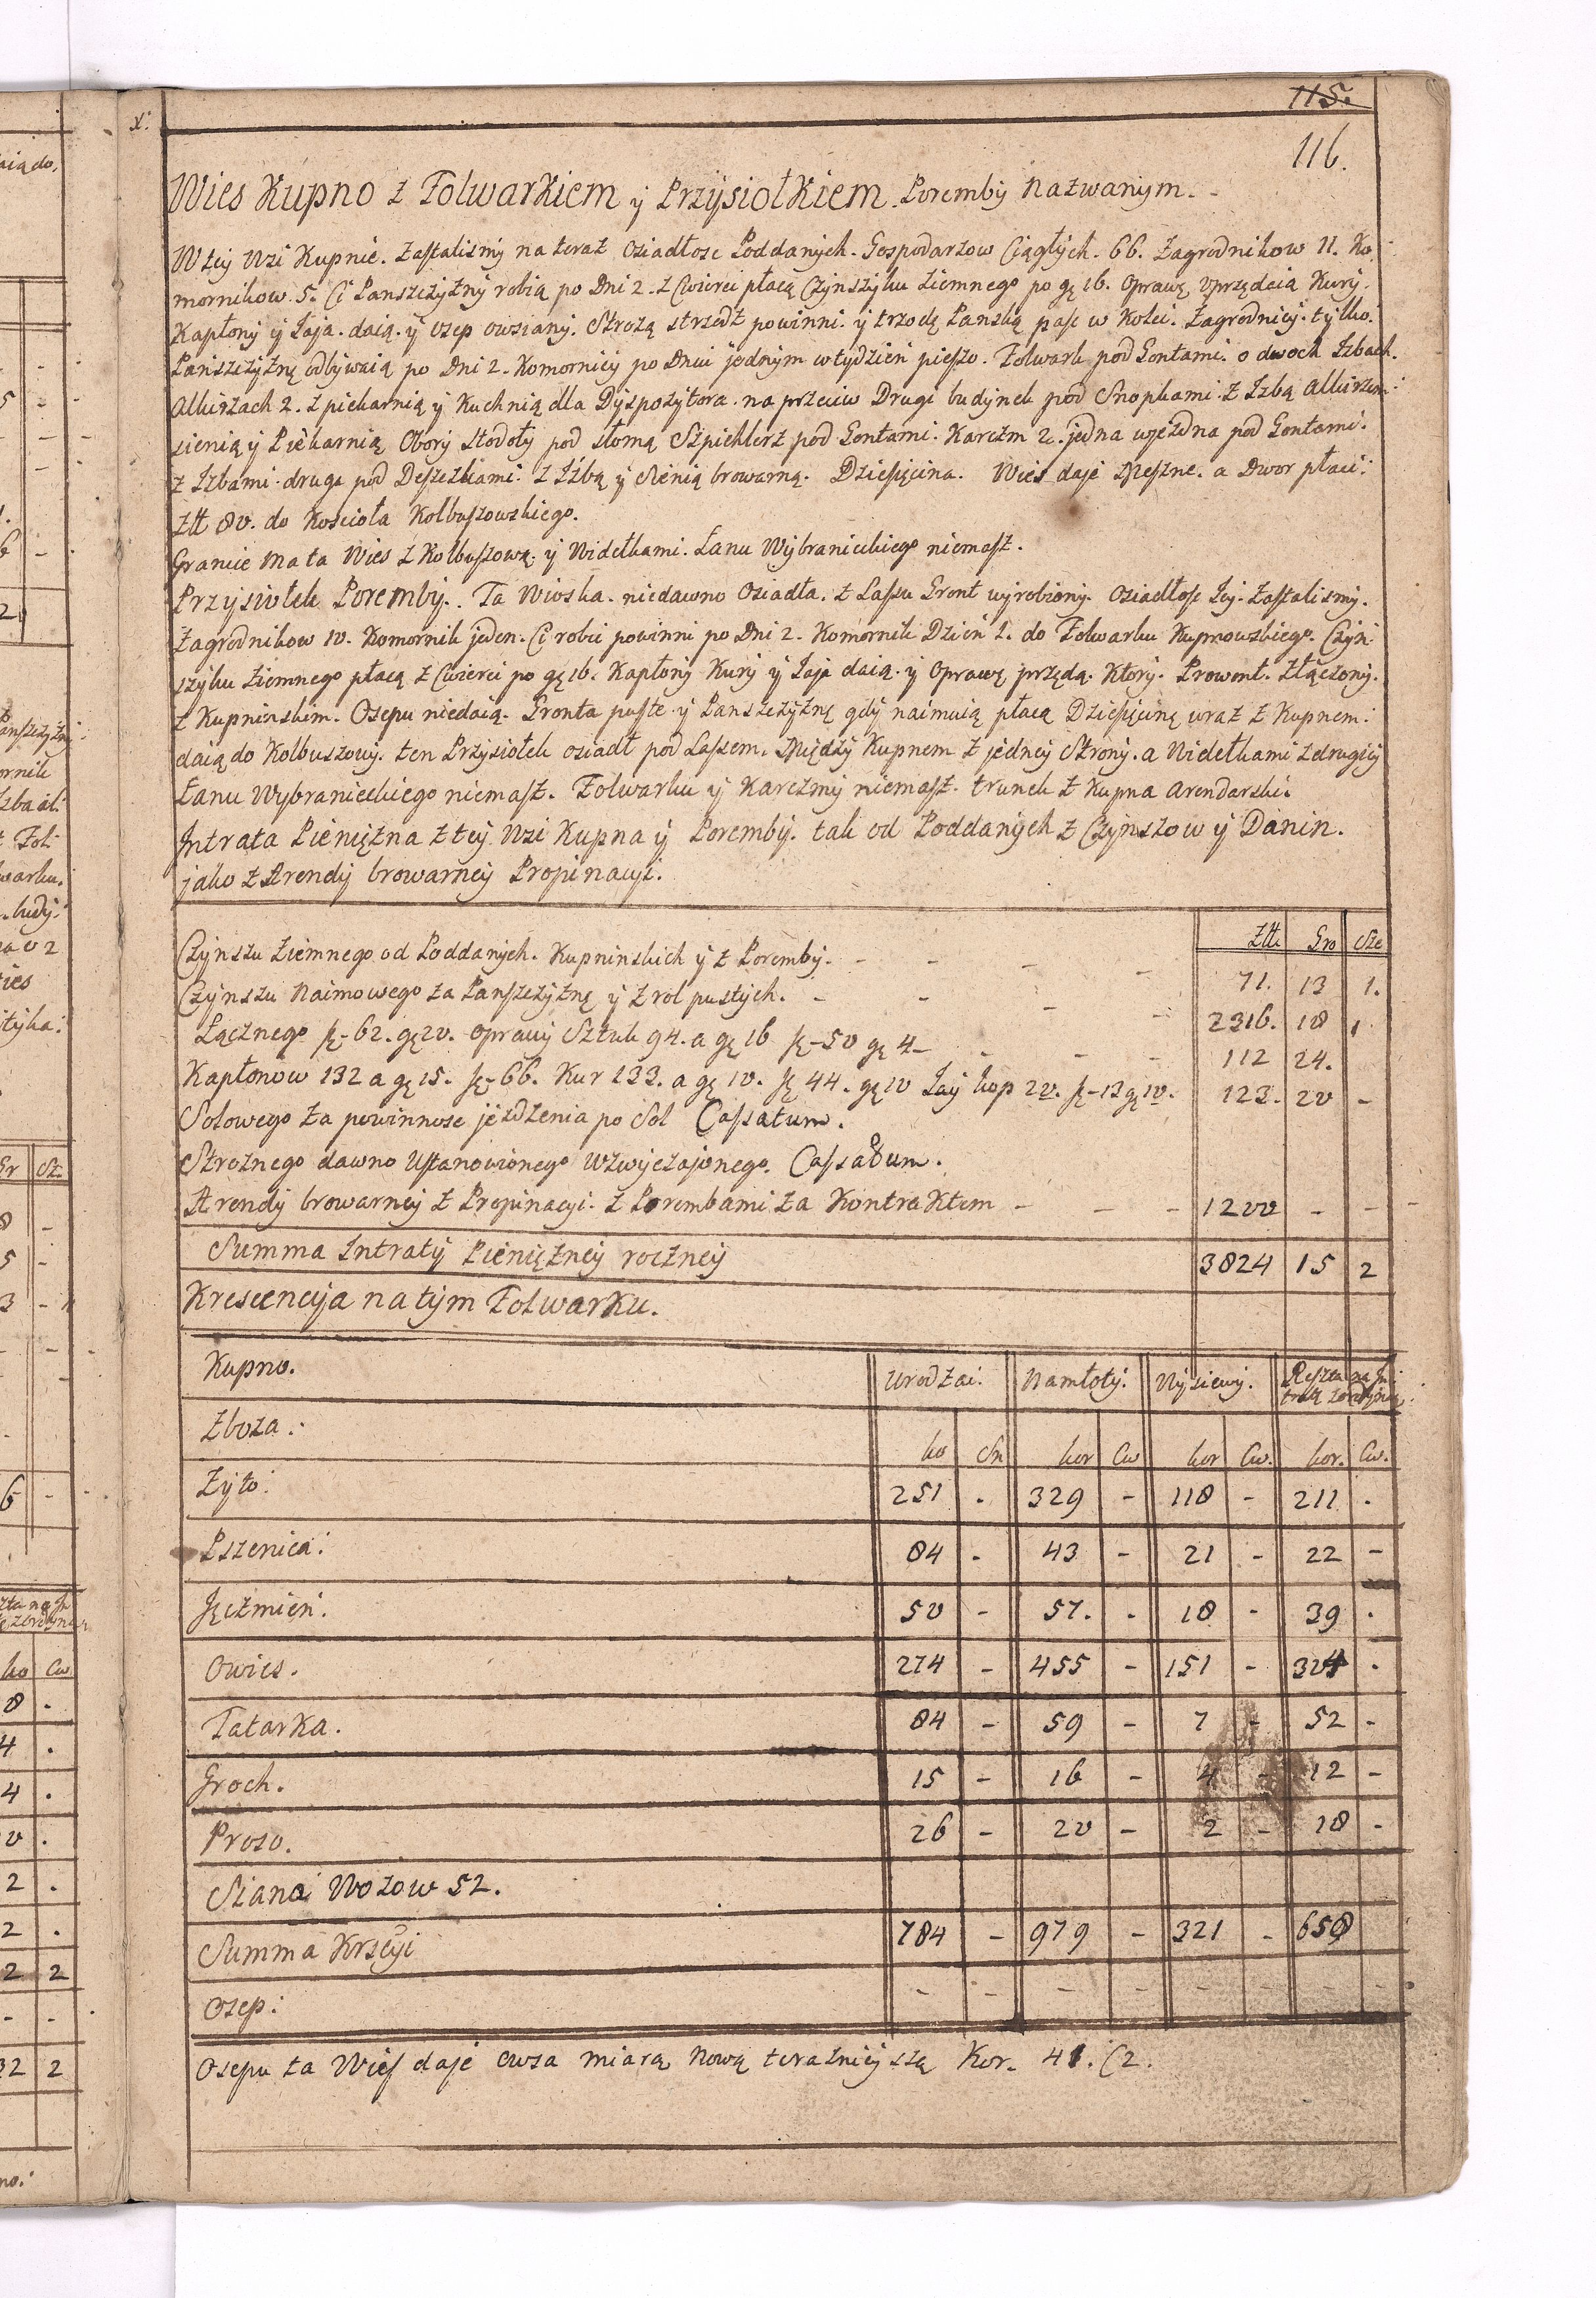 115.
116.
x:
Wies Kupno z Folwarkiem y Przysiołkiem Poremby nazwanym.
W tey Wzi Kupnie. zastalismy na teraz osiadłosc Poddanych. Gospodarzow Ciągłych. 66. Zagrodnikow 11. Ko:
mornikow. 5. Ci Panszczyzny robią po Dni 2. z Cwierci płacą Czynszyku ziemnego po gę 16. Oprawę uprzędaią Kury.
Kapłony y Jaja. daią. y osep owsiany. Strożą strzedz powinni. y trzodę Panską pasc w Kolei. Zagrodnicy. tylko.
Panszczyznę odbywaią po Dni 2. Komornicy po Dniu jednym w tydzien pieszo. Folwark pod Gontami. o dwoch Izbach.
Alkirzach 2. z piekarnią y Kuchnią dla Dyspozytora. na przeciw Drugi budynek pod Snopkami. z Izbą Alkirzem:
sienią y Piekarnią Obory stodoły pod słomą Szpichlerz pod Gontami. Karczm 2. jedna wjezdna pod Gontami.
z Izbami. druga pod Deszczkami. z Izbą y Sienią browarną. Dziesięcina. Wies daje Meszne. a Dwor płaci:
Złł 80. do Koscioła Kolbuszowskiego.
Granice ma ta Wies z Kolbuszową. y Widełkami. Łanu Wybranieckiego niemasz.
Przysiołek Poremby. Ta Wioska. niedawno osiadła. z Lassu Gront wyrobiony. osiadłosc Jey. zastalismy.
Zagrodnikow 10. Komornik jeden. Ci robic powinni po Dni 2. Komornik Dzien 1. do Folwarku Kupnowskiego. Czyn:
szyku ziemnego płacą z Cwierci po gę 16. Kapłony Kury y Jaja daią. y Oprawę przędą. Ktory. Prowent. złączony.
z Kupninskim. Osepu niedaią. Gronta puste y Panszczyznę gdy naimuią płacą Dziesięcinę wraz z Kupnem:
daią do Kolbuszowy. ten Przysiołek osiadł pod Lassem. Między Kupnem z jedney Strony. a Widełkami z drugiey
Łanu Wybranieckiego niemasz. Folwarku y Karczmy niemasz. trunek z Kupna Arendarski.
Intrata Pieniężna z tey Wzi Kupna y Poremby. tak od Poddanych z Czynszow y Danin.
jako z Arendy browarney Propinacyi.
Złł. Gro Sze
Czynszu ziemnego od Poddanych. Kupninskich y z Poremby. - - - - 71. 13 1.
Czynszu Naimowego za Panszczyznę y z rol pustych. - - - - 2316. 18 1
Łącznego fę-62. gę 20. Oprawy Sztuk 94. a gę 16 fę-50 gę 4 - - - - 112 24.
Kapłonow 132 a gę 15. fę-66. Kur 133. a gę 10. fę 44. gę 10 Jay kop 20. fę-13 gę 10. 123. 20 -
Solowego za powinnosc jezdzenia po Sol Cassatum.
Stroznego dawno Ustanowionego Uzwyczajonego. Cassatum.
Arendy browarney z Propinacyi. z Porembami za Kontraktem - - - 1200 - -
Summa Intraty Pieniężney roczney 3824 15 2
Krescencyja na tym Folwarku.
Kupno. Urodzai. Namłoty. Wysiewy. Reszta na In:
tratę zordynar:
Zboza: ko Sn kor Cw kor Cw. kor. Cw.
Zyto: 251 . 329 - 118 - 211 .
Pszenica: 84 - 43 - 21 - 22 -
Jęczmien. 50 - 57. . 18 - 39 .
Owies. 274 - 455 - 151 - 304 .
Tatarka. 84 - 59 - 7 - 52 -
Groch. 15 - 16 - 4 - 12 -
Proso. 26 - 20 - 2 - 18 -
Siana Wozow 52.
Summa Krscyi 784 - 979 - 321 - 658
Osep: - - - - - - - -
Osepu ta Wies daje owsa miarą Nową teraznieyszą Kor. 41. C2.